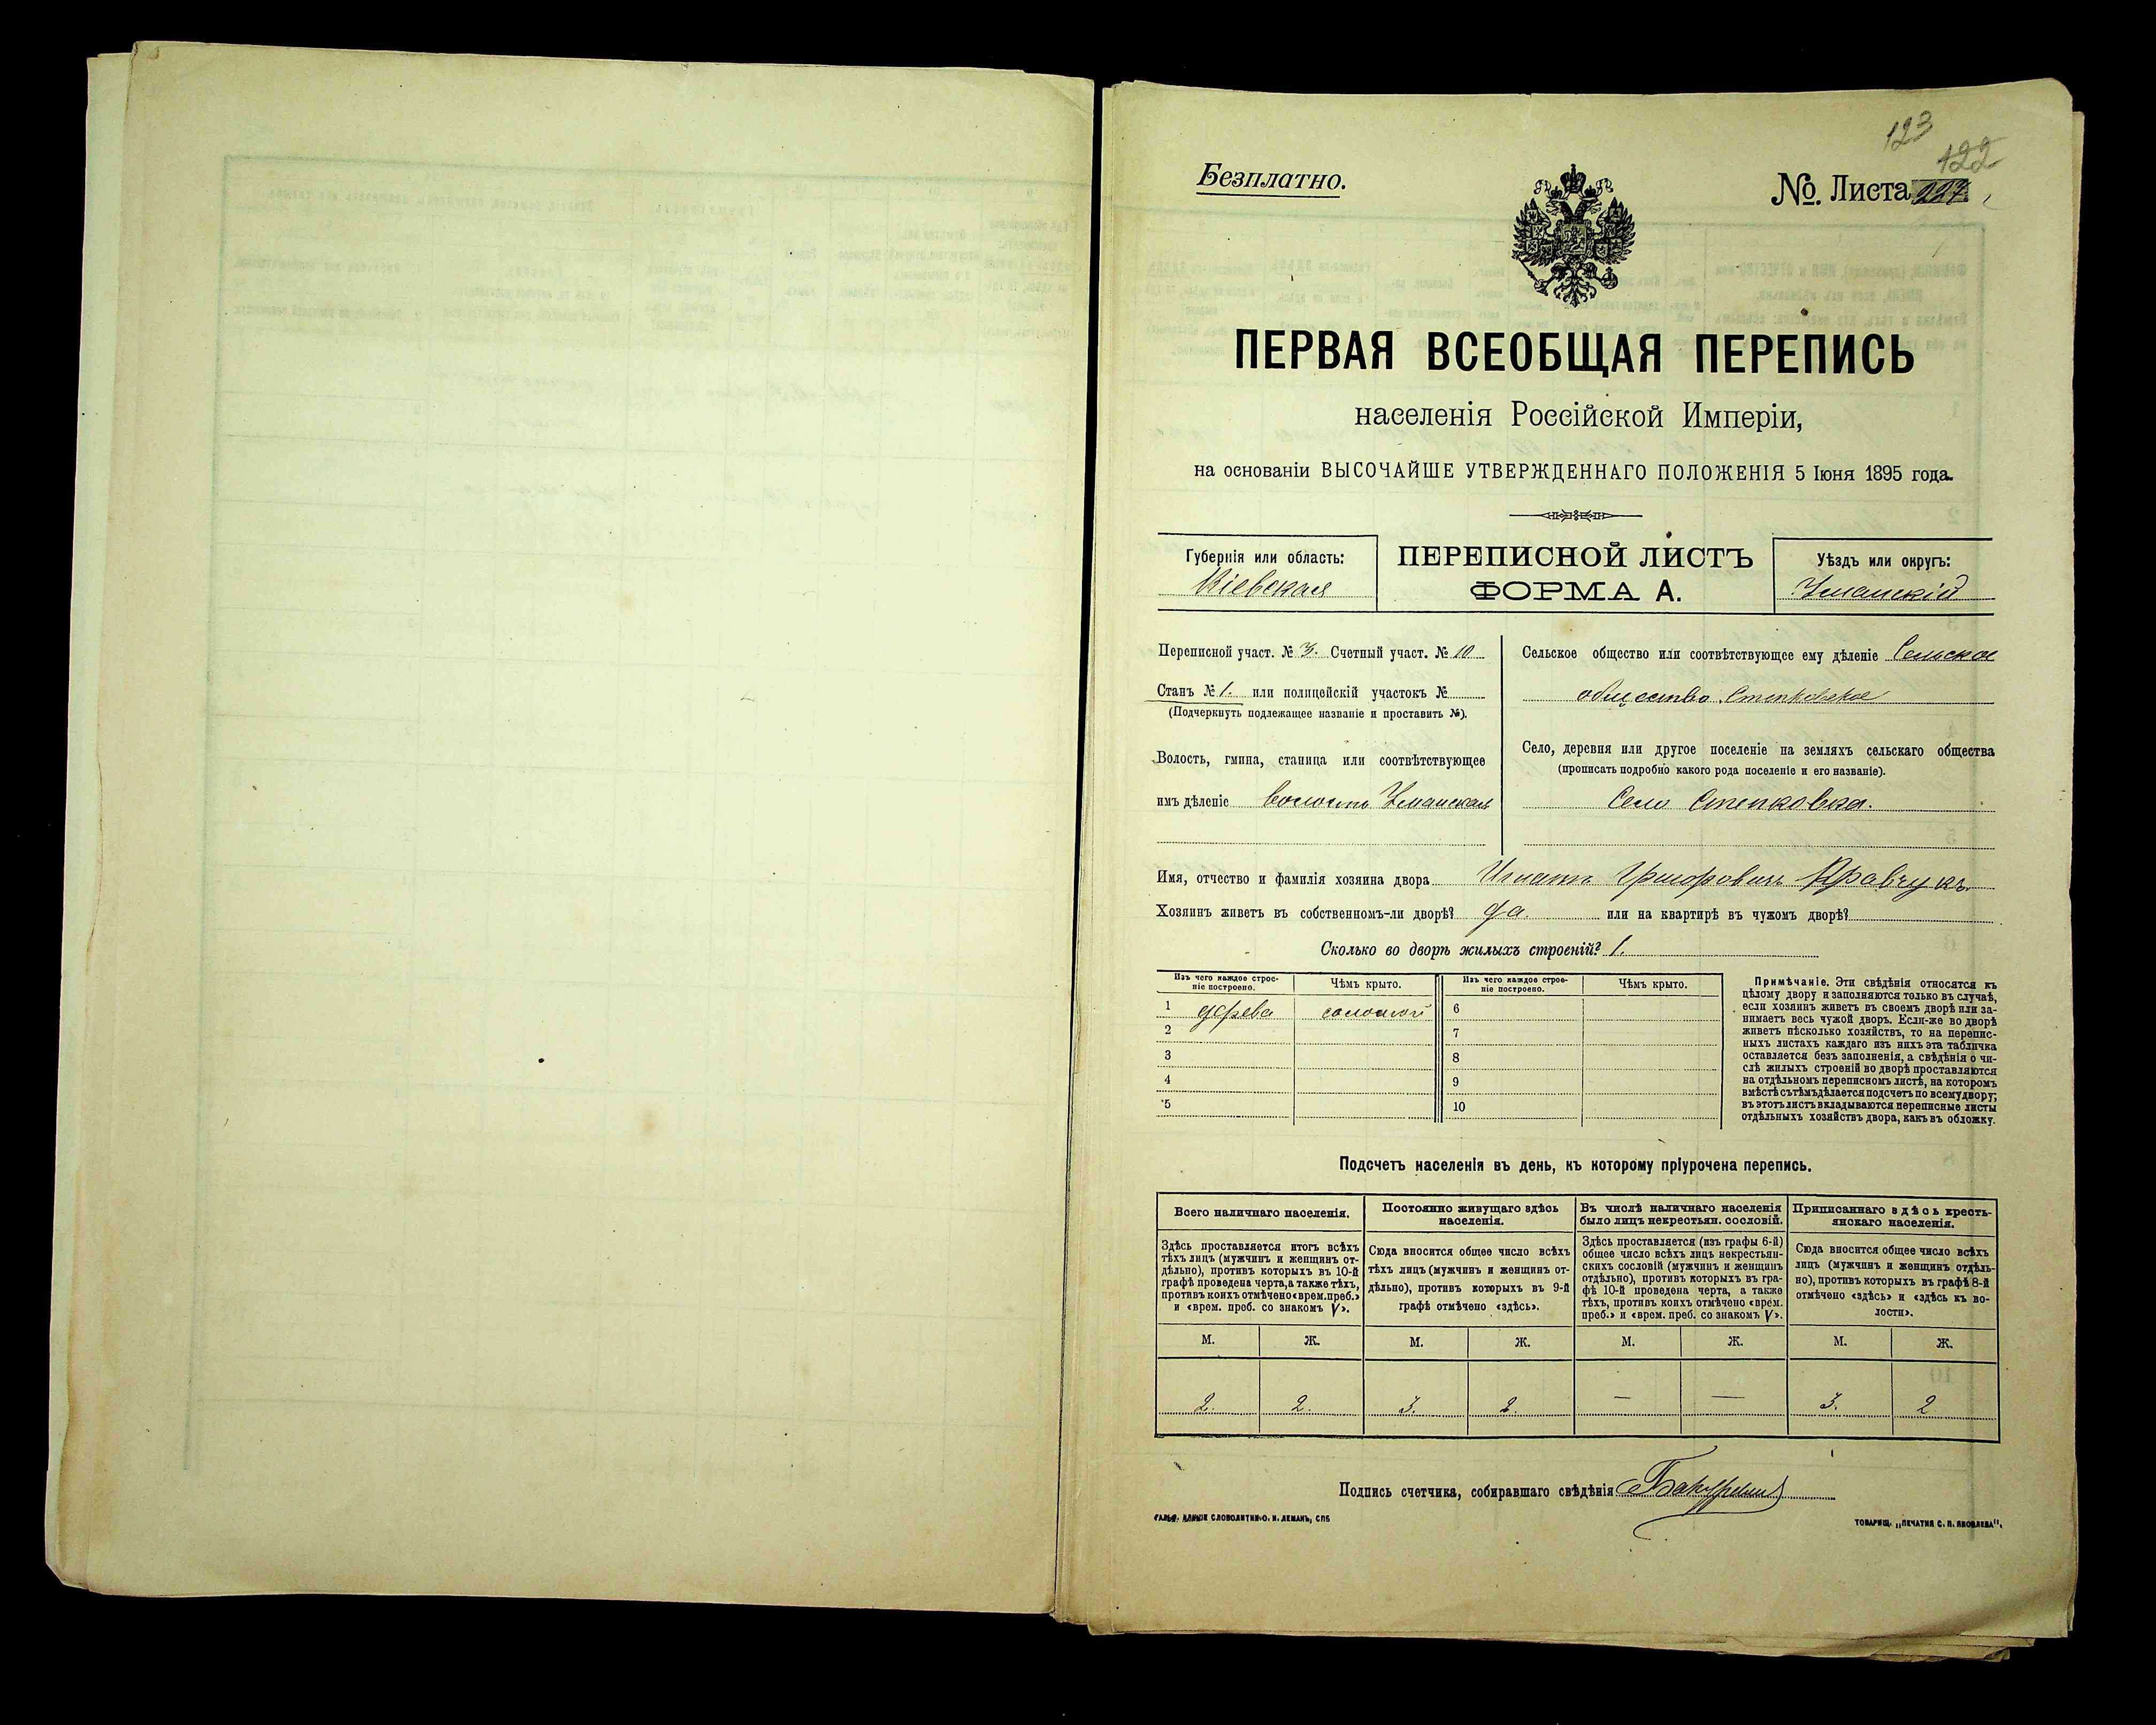 123
122
Безплатно.
№. Листа
ПЕРВАЯ ВСЕОБЩАЯ ПЕРЕПИСЬ
населенія Россійской Имперіи,
на основаніи ВЫСОЧАЙШЕ УТВЕРЖДЕННАГО ПОЛОЖЕНІЯ 5 Іюня 1895 года.
Губернія или область:
Кіевская
ПЕРЕПИСНОЙ ЛИСТЪ
ФОРМА А.
Уѣздъ или округъ:
Уманскій
Переписной участ. № 3. Счетный участ. № 10
Станъ № 1. или полицейскій участокъ №
(Подчеркнуть подлежащее названіе и проставить №).
Волость, гмина, станица или соотвѣтствующее
имъ дѣленіе волость Уманская
Сельское общество или соотвѣтствующее ему дѣленіе Сельское
общество Степковское
Село, деревня или другое поселеніе на земляхъ сельскаго общества
(прописать подробно какого рода поселеніе и его названіе).
Село Степковка.
Имя, отчество и фамилія хозяина двора Игнатъ Григоровичъ Кравчукъ
Хозяинъ живетъ въ собственномъ-ли дворѣ? да. или на квартирѣ въ чужомъ дворѣ?
Сколько во дворѣ жилыхъ строеній? 1.
Изъ чего каждое строе-
ніе построено.
Чѣмъ крыто.
Изъ чего каждое строе-
ніе построено.
Чѣмъ крыто.
1 дерева соломой 6
2 7
3 8
4 9
5 10
Примѣчаніе. Эти свѣдѣнія относятся къ
цѣлому двору и заполняются только въ случаѣ,
если хозяинъ живетъ въ своемъ дворѣ или за-
нимаетъ весь чужой дворъ. Если-же во дворѣ
живетъ нѣсколько хозяйствъ, то на перепис-
ныхъ листахъ каждаго изъ нихъ эта табличка
оставляется безъ заполненія, а свѣдѣнія о чи-
слѣ жилыхъ строеній во дворѣ проставляются
на отдѣльномъ переписномъ листѣ, на которомъ
вмѣстѣ съ тѣмъ дѣлается подсчетъ по всему двору;
въ этотъ листъ вкладываются переписные листы
отдѣльныхъ хозяйствъ двора, какъ въ обложку.
Подсчетъ населенія въ день, къ которому пріурочена перепись.
Всего наличнаго населенія.
Здѣсь проставляется итогъ всѣхъ
тѣхъ лицъ (мужчинъ и женщинъ от-
дѣльно), противъ которыхъ въ 10-й
графѣ проведена черта, а также тѣхъ,
противъ коихъ отмѣчено «врем. преб.»
и «врем. преб. со знакомъ V».
Постоянно живущаго здѣсь
населенія.
Сюда вносится общее число всѣхъ
тѣхъ лицъ (мужчинъ и женщинъ от-
дѣльно), противъ которыхъ въ 9-й
графѣ отмѣчено «здѣсь».
Въ числѣ наличнаго населенія
было лицъ некрестьян. сословій.
Здѣсь проставляется (изъ графы 6-й)
общее число всѣхъ лицъ некрестьян-
скихъ сословій (мужчинъ и женщинъ
отдѣльно), противъ которыхъ въ гра-
фѣ 10-й проведена черта, а также
тѣхъ, противъ коихъ отмѣчено «врем.
преб.» и «врем. преб. со знакомъ V».
Приписаннаго здѣсь кресть-
янскаго населенія.
Сюда вносится общее число всѣхъ
лицъ (мужчинъ и женщинъ отдѣль-
но), противъ которыхъ въ графѣ 8-й
отмѣчено «здѣсь» и «здѣсь къ во-
лости».
М. Ж. М. Ж. М. Ж. М. Ж.
2. 2. 3. 2. — — 3. 2
Подпись счетчика, собиравшаго свѣдѣнія
СЛОВОЛИТНИ О. И. ЛЕМАНЪ, СПБ
ТОВАРИЩ. „ПЕЧАТНЯ С. П. ЯКОВЛЕВА“.